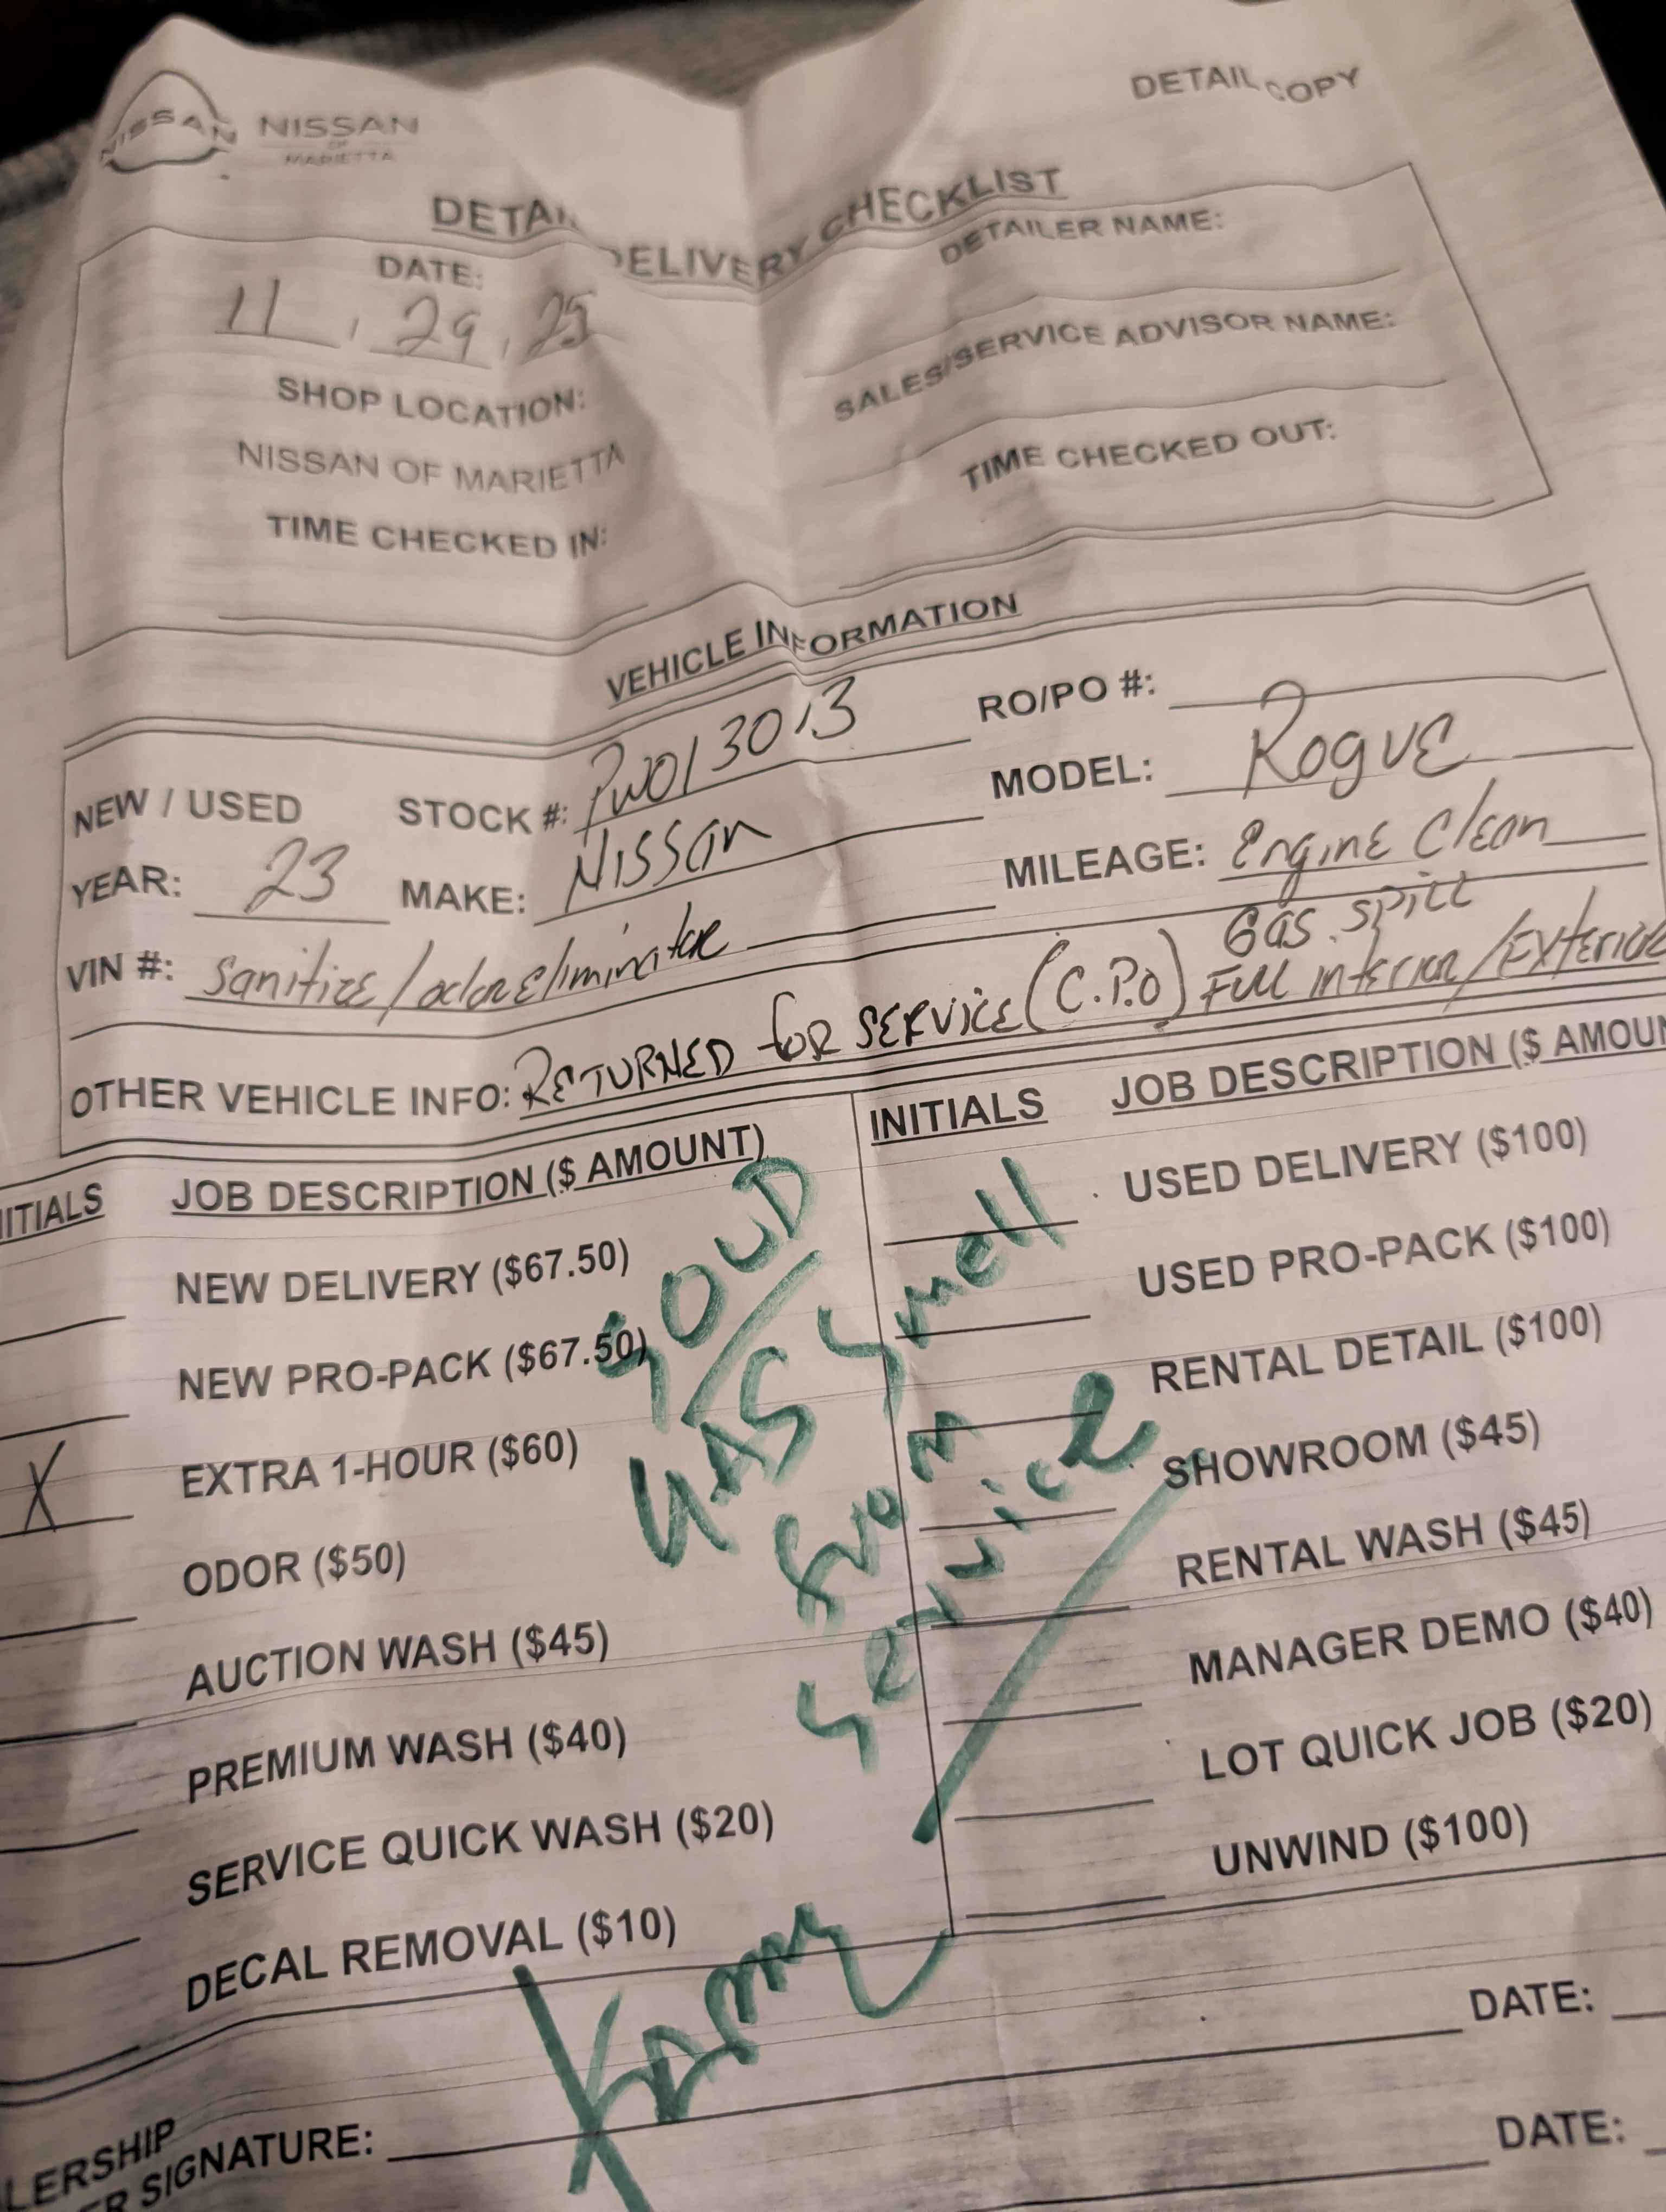 NISSAN
NISSAN
OF
MARIETTA
DETAIL COPY
DETAI DELIVERY CHECKLIST
DATE:
11, 29, 25
DETAILER NAME:
SHOP LOCATION:
NISSAN OF MARIETTA
SALES/SERVICE ADVISOR NAME:
TIME CHECKED IN:
TIME CHECKED OUT:
VEHICLE INFORMATION
NEW / USED STOCK #: PW013013 RO/PO #:
YEAR: 23 MAKE: Nissan MODEL: Rogue
VIN #: Sanitize/odor Eliminator MILEAGE: Engine Clean
Gas spill
Full interior/Exterior
OTHER VEHICLE INFO: RETURNED for SERVICE (C.P.O)
ITIALS JOB DESCRIPTION ($ AMOUNT) INITIALS JOB DESCRIPTION ($ AMOUN
NEW DELIVERY ($67.50) USED DELIVERY ($100)
NEW PRO-PACK ($67.50) USED PRO-PACK ($100)
X EXTRA 1-HOUR ($60) RENTAL DETAIL ($100)
ODOR ($50) SHOWROOM ($45)
AUCTION WASH ($45) RENTAL WASH ($45)
PREMIUM WASH ($40) MANAGER DEMO ($40)
SERVICE QUICK WASH ($20) LOT QUICK JOB ($20)
DECAL REMOVAL ($10) UNWIND ($100)
GAS Smell
from
Service
LERSHIP
ER SIGNATURE:
DATE:
DATE: